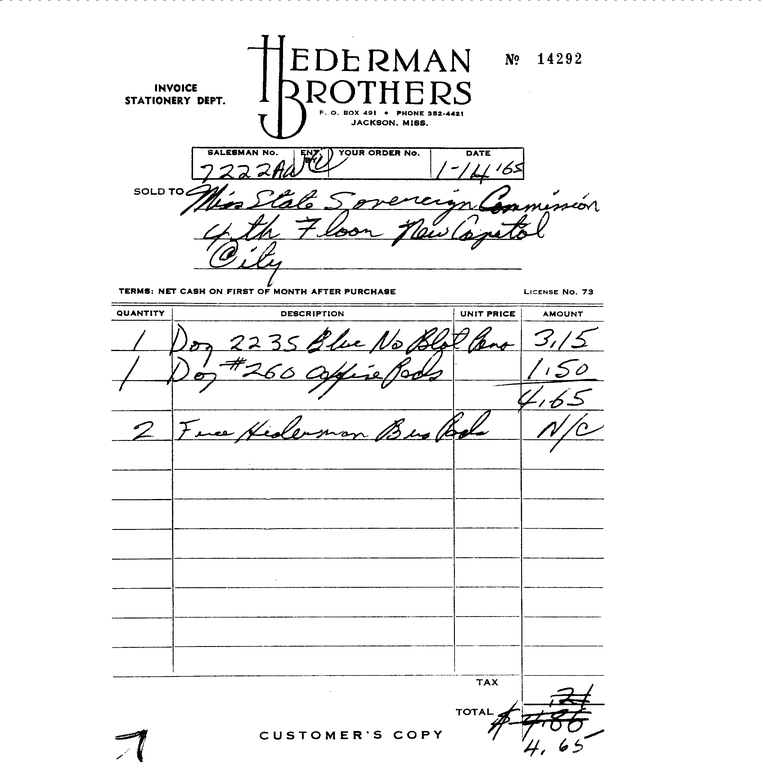 HEDERMAN
BROTHERS
Nº 14292
INVOICE
STATIONERY DEPT.
P. O. BOX 491 • PHONE 352-4421
JACKSON, MISS.
SALESMAN No. ENT. BY YOUR ORDER No. DATE
7222 1-14-'65
SOLD TO Miss State Sovereign Commission
4th Floor New Capitol
City
TERMS: NET CASH ON FIRST OF MONTH AFTER PURCHASE LICENSE No. 73
QUANTITY DESCRIPTION UNIT PRICE AMOUNT
1 Doz 2235 Blue No Blot Pens 3.15
1 Doz #260 Office Pads 1.50
4.65
2 Free Hederman Bros Pads N/C
TAX .21
TOTAL $ 4.86
4.65
CUSTOMER'S COPY